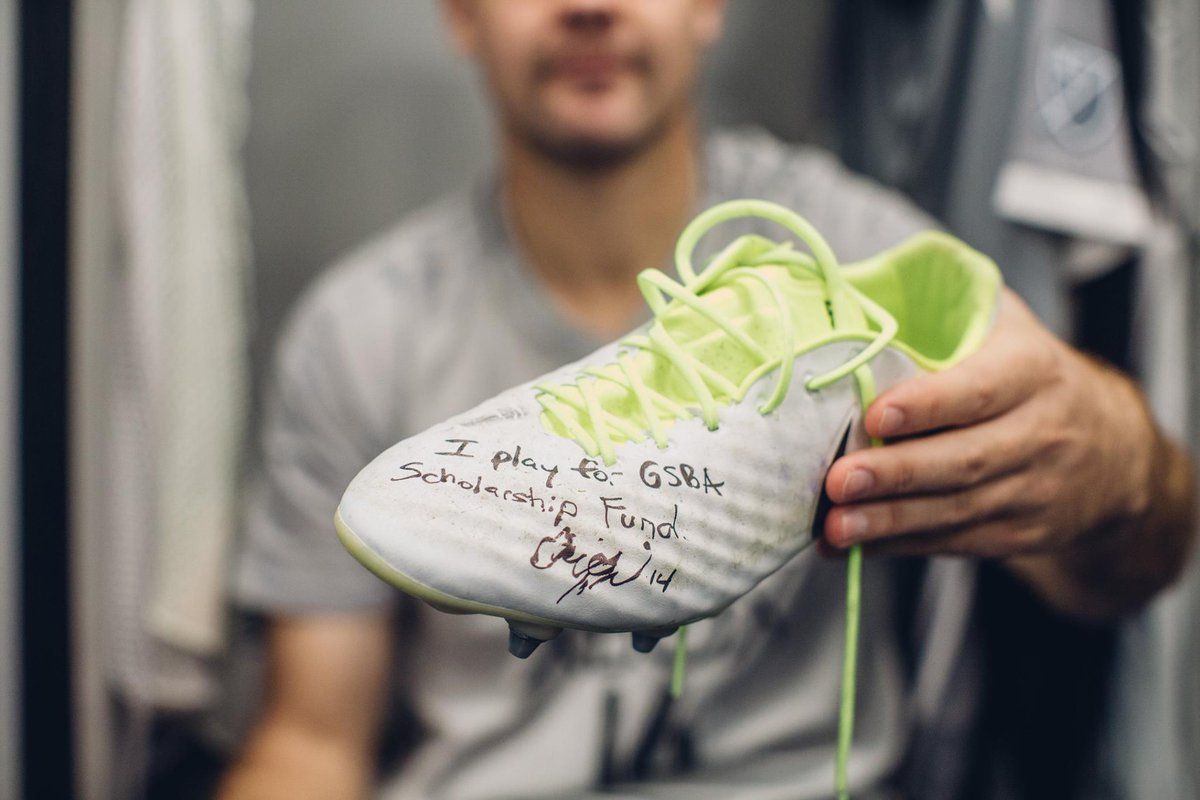 I play for GSBA
Scholarship Fund.
14